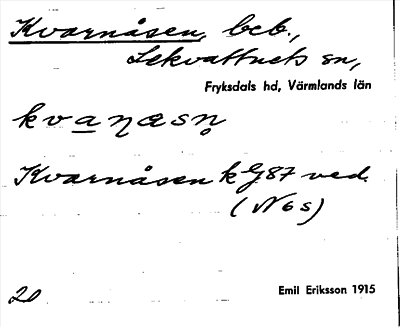 Kvarnåsen, beb.,
Lekvattnets sn,
Fryksdals hd, Värmlands län
kvaɳæsn̥
Kvarnåsen k G87 ved.
(N6s)
20
Emil Eriksson 1915